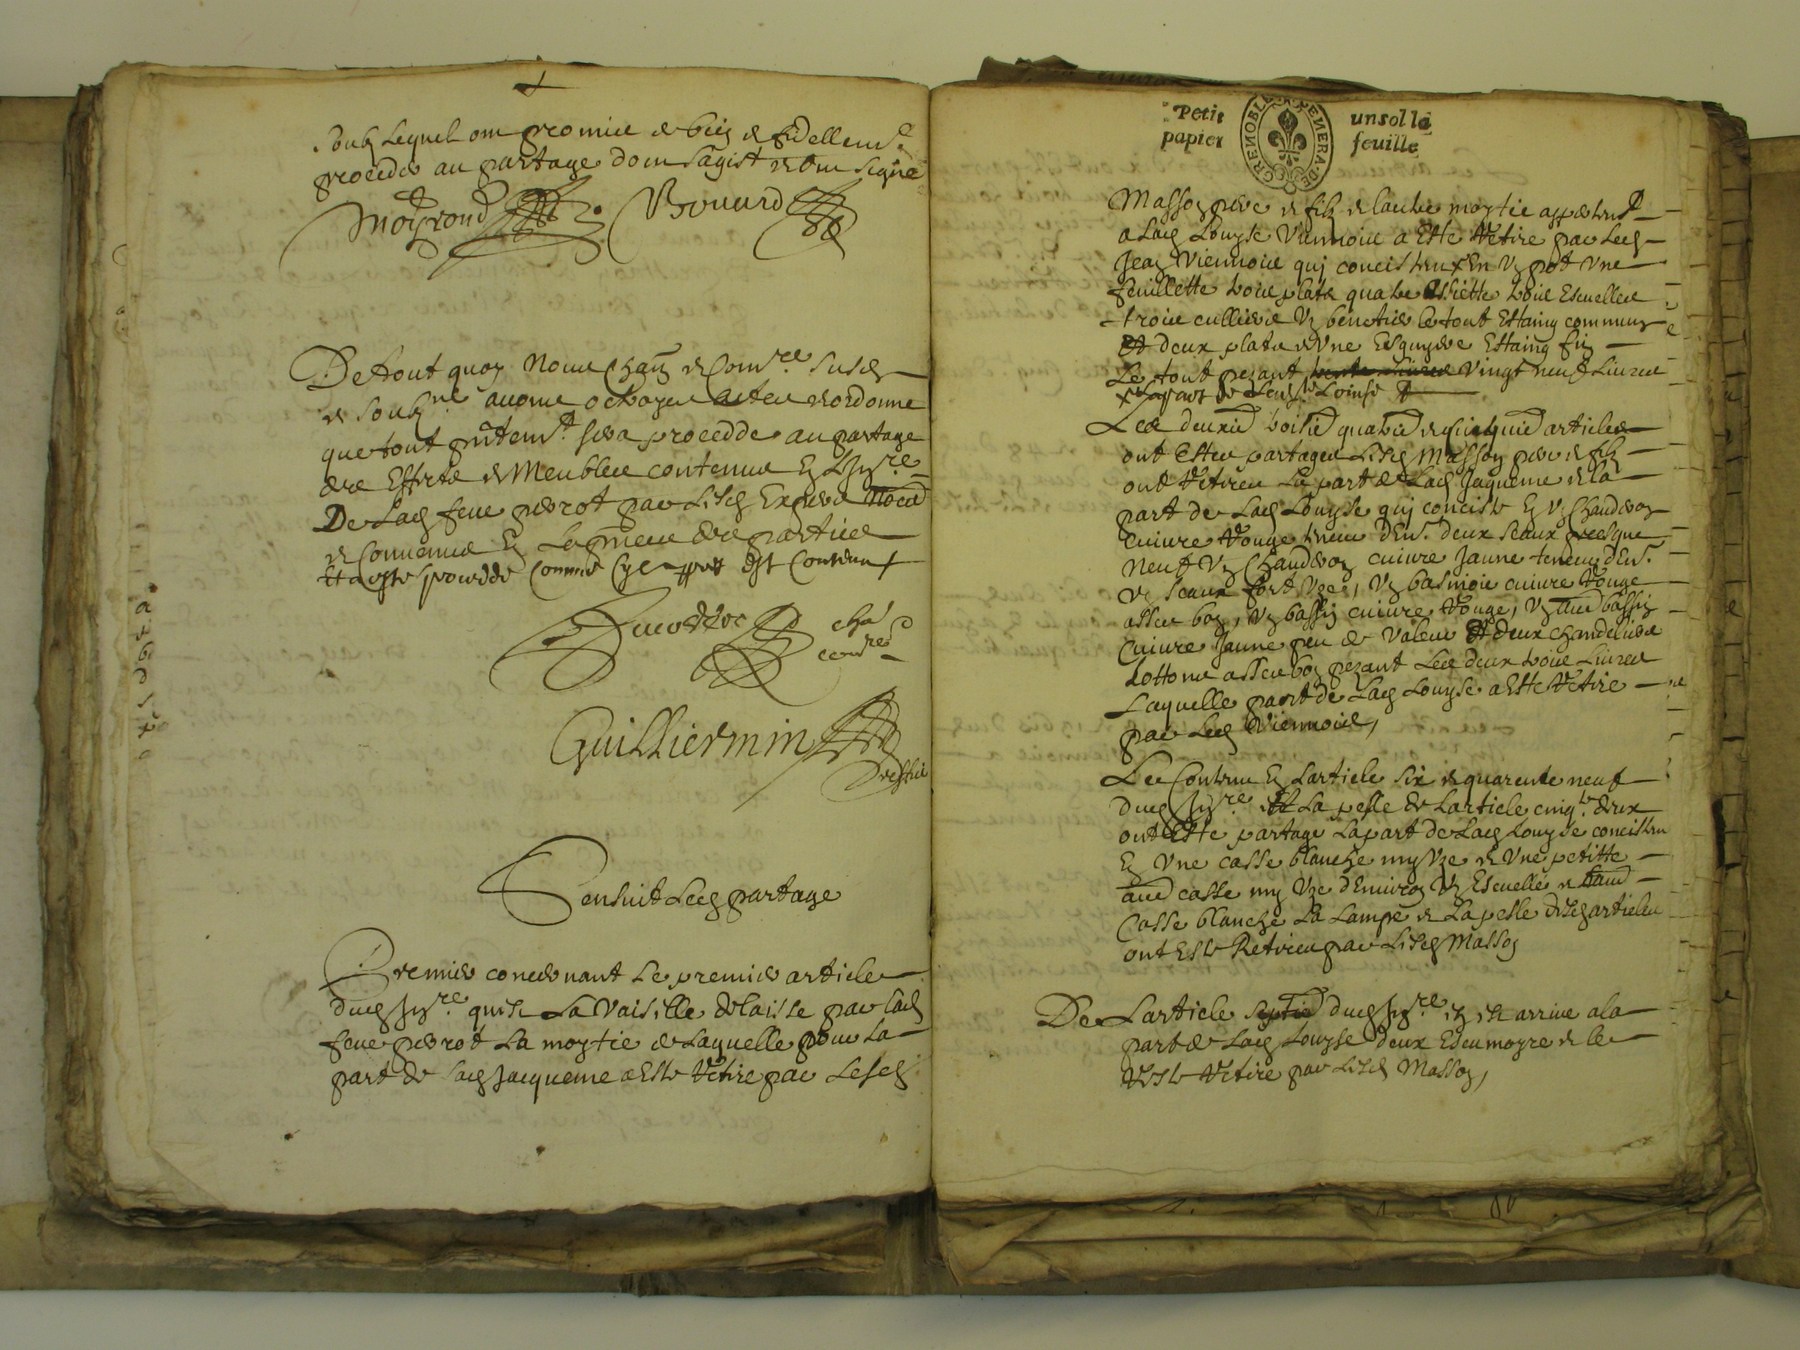 soubz Lequel ont promise de bien et fidellemt
proceder au partage dont sagist et ont signe
Moyrond Bouard
De tout quoy Nous Chan et Comre susd
et soubné avons octroyé Acte et ordonne
que tout pntemt sera procedde au partage
des Effects et Meubles contenus En Linvre
De Lad feue perot par Lisd Expers
et Convenus En La pnce des parties
Et a esté procedde Comme Cy apprès Est Contenu
cha
comre
Guilliermin
Greffier
Sensuit Led partage
Premier concernant Le premier article
dud Invre quest La Vaisille delaisse par lad
feue perrot La moytie de Laquelle pour La
part de Lad Jacqueme a Este Retire par Lesd
Petit papier
GRENOBLE GENERA DE
un sol la feuille
Masson pere et filz et lautre moytie appartent
a Lad Louyse Viennois a Este Retire par Led
Jean Viennois quj concistent En Un pot Une
feuillette trois plats quatre Assiette trois Escuelles
trois cullieres Un benetier le tout Estaing commung
Et deux plats et Une Esguyere Estaing fin
Le tout pezant trente Livres Vingt neuf Livres
Les deuxie troisie quatrie et Cinquie articles
ont Estes partages Lisd Masson pere et filz
ont Retires La part de Lad Jaqueme et la
part de Lad Louyse quj conciste En Un Chauderon
cuivre Rouge tenent denv deux Seaux presque
Neuf Un Chauderon cuivre Jaune teneur denv
Un Seaux fort Uze, Un basinoir cuivre Rouge
asses bon, Un bassin cuivre Rouge, Un aud bassin
Cuivre Jaune peu de Valeur Et deux chandeliers
Lottons asses bon pezant Les deux trois Livres
Laquelle part de Lad Louyse a Este Retire
par Led Viennois,
Les Contenu En Larticle Six et quarente neuf
dud Invre Et La pesle de Larticle cinqte deux
ont Este partage La part de Lad Louyse concistent
En Une casse blanche my Uze et Une petitte
aud casse my Uze dEnviron Un Escuelle et Laud
Casse blanche La Lampe et La pesle desd articles
ont Este Retires par Lisd Masson
De Larticle Septie dud Invre En est arrive a la
part de Lad Louyse deux Escumoyre et le
Reste Retire par Lisd Masson,